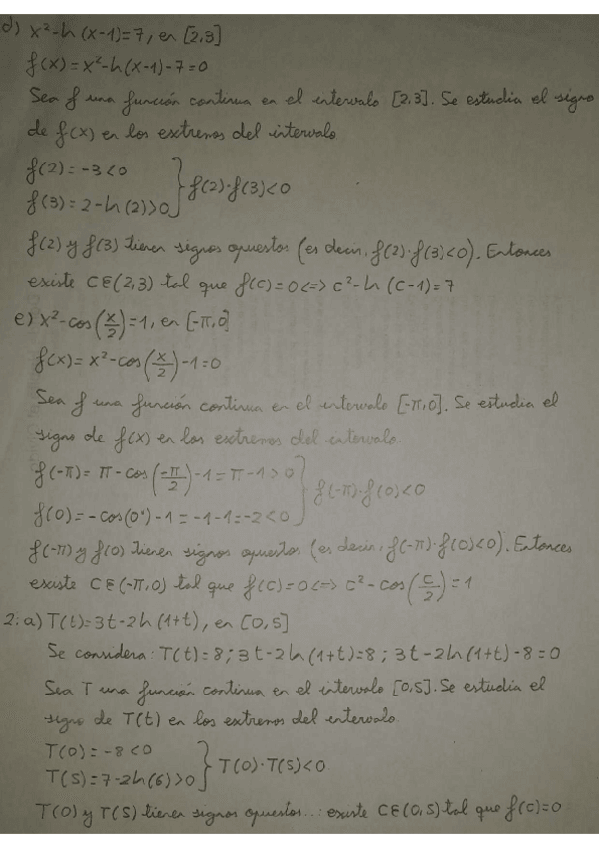 d) x²-ln(x-1)=7, en [2,3]
f(x)=x²-ln(x-1)-7=0
Sea f una función continua en el intervalo [2,3]. Se estudia el signo
de f(x) en los extremos del intervalo
f(2)=-3<0
f(3)=2-ln(2)>0 } f(2)·f(3)<0
f(2) y f(3) tienen signos opuestos (es decir, f(2)·f(3)<0). Entonces
existe c∈(2,3) tal que f(c)=0<=>c²-ln(c-1)=7
e) x²-cos(x/2)=1, en [-π,0]
f(x)=x²-cos(x/2)-1=0
Sea f una función continua en el intervalo [-π,0]. Se estudia el
signo de f(x) en los extremos del intervalo
f(-π)=π-cos(-π/2)-1=π-1>0
f(0)=-cos(0°)-1=-1-1=-2<0 } f(-π)·f(0)<0
f(-π) y f(0) tienen signos opuestos (es decir, f(-π)·f(0)<0). Entonces
existe c∈(-π,0) tal que f(c)=0<=>c²-cos(c/2)=1
2. a) T(t)=3t-2ln(1+t), en [0,5]
Se considera: T(t)=8; 3t-2ln(1+t)=8; 3t-2ln(1+t)-8=0
Sea T una función continua en el intervalo [0,5]. Se estudia el
signo de T(t) en los extremos del intervalo
T(0)=-8<0
T(5)=7-2ln(6)>0 } T(0)·T(5)<0
T(0) y T(5) tienen signos opuestos...: existe c∈(0,5) tal que f(c)=0